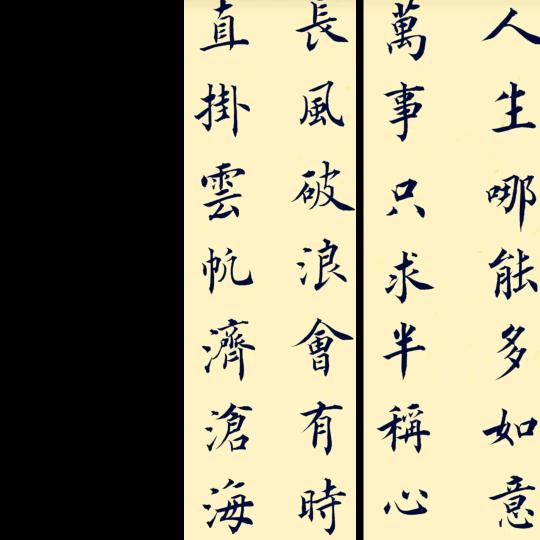 人生哪能多如意
萬事只求半稱心
長風破浪會有時
直掛雲帆濟滄海